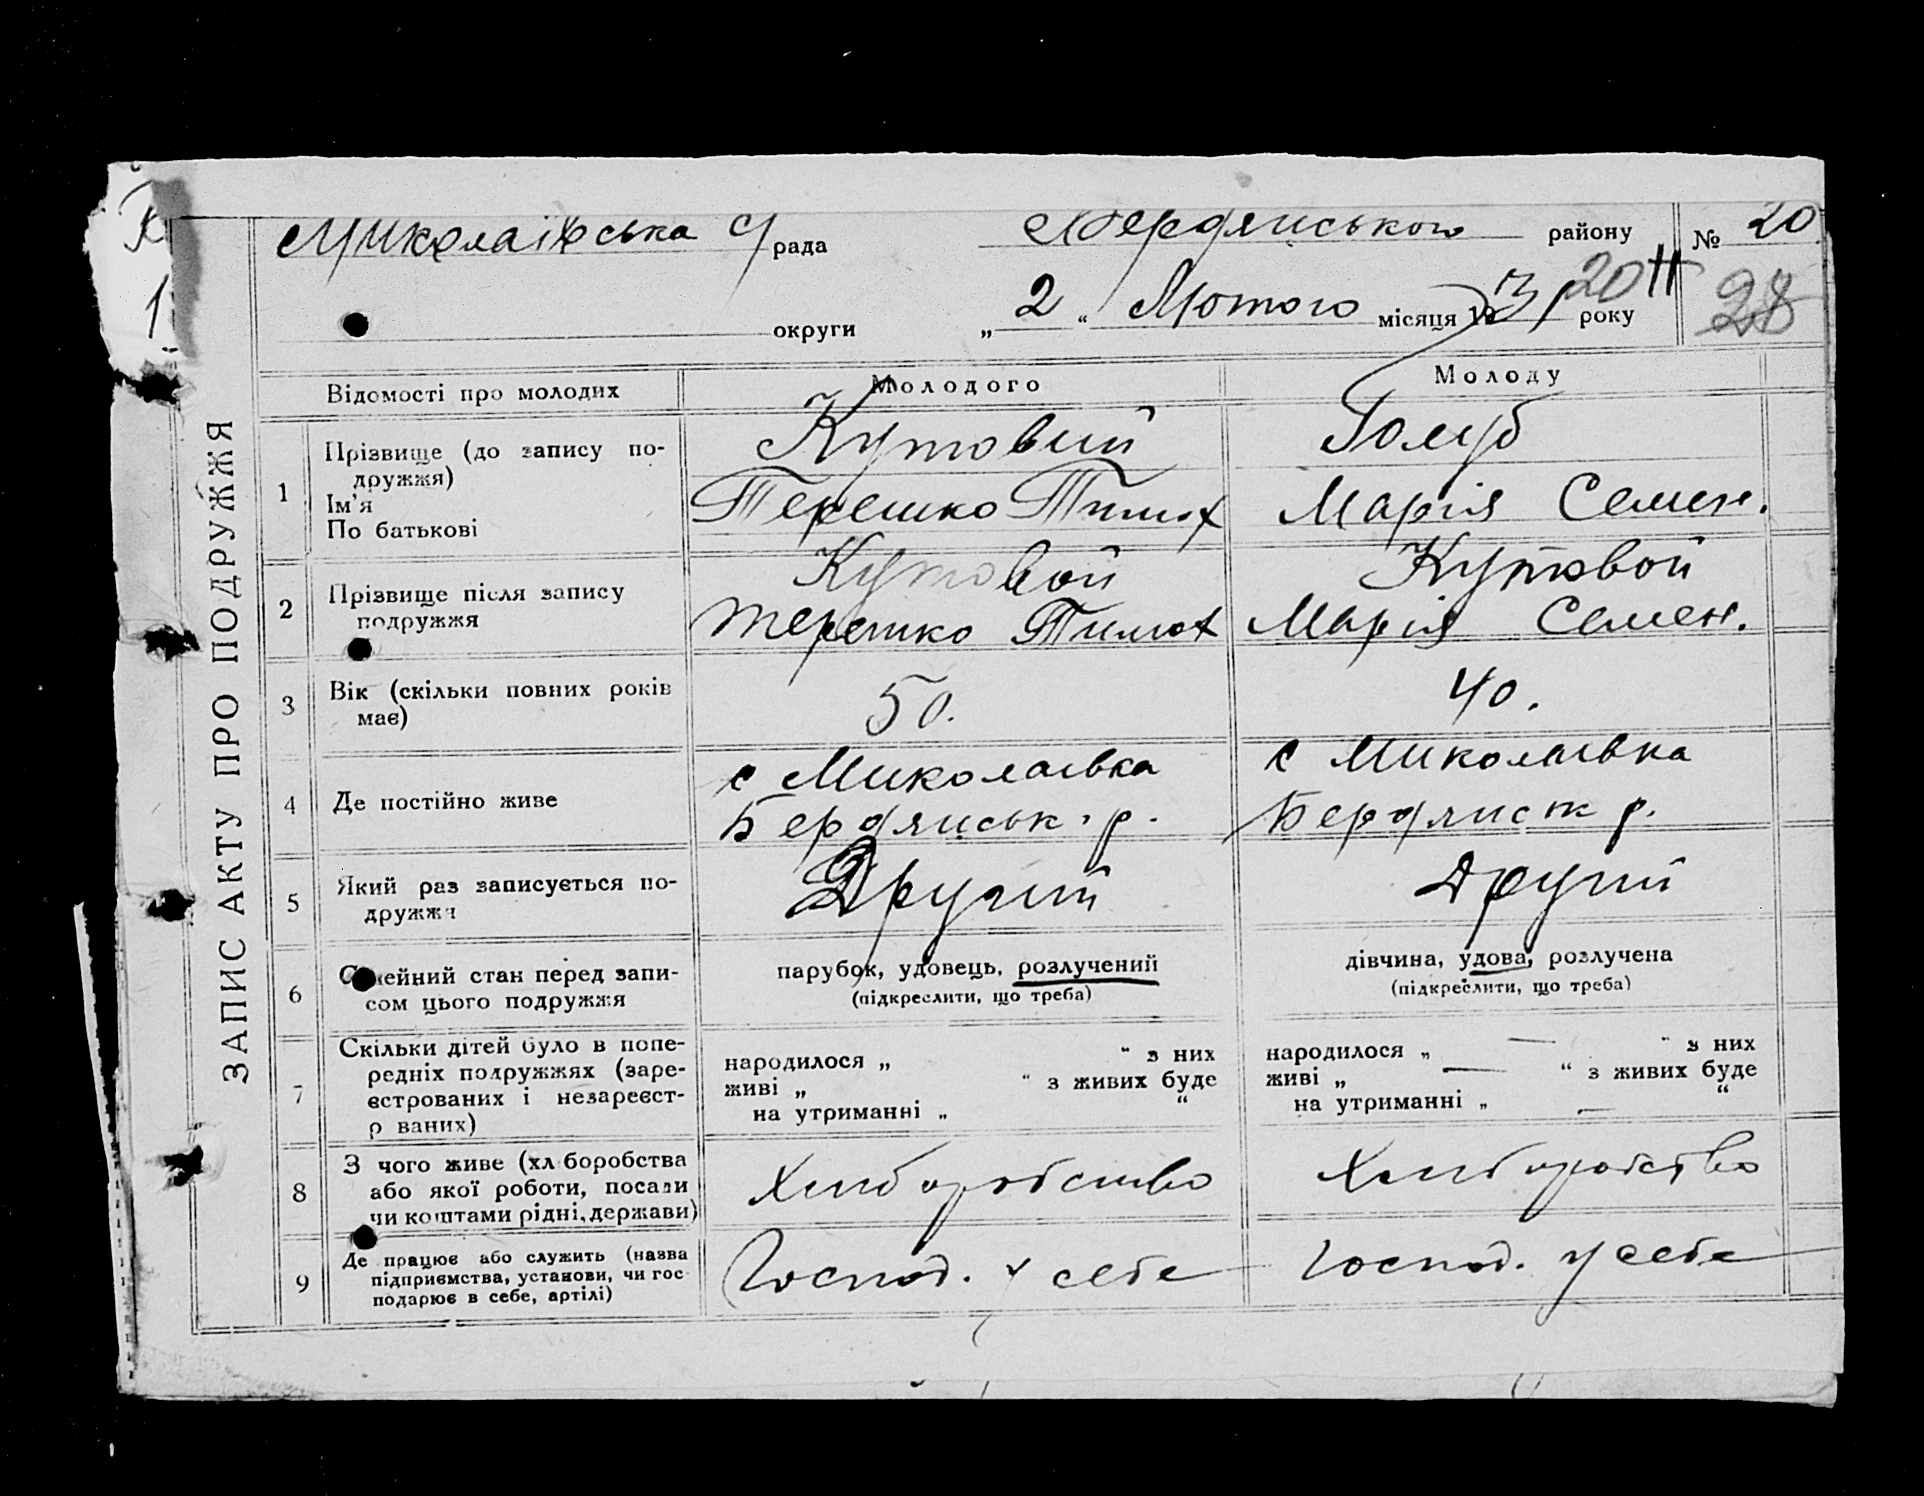 К
1
Миколаївська с/рада Бердянського району № 20
20 ІІ
28
округи „ 2 “ Лютого місяця 1931 року
ЗАПИС АКТУ ПРО ПОДРУЖЖЯ
Відомості про молодих Молодого Молоду
1 Прізвище (до запису по-
дружжя)
Ім'я
По батькові
Кутовий
Терешко Тимох
Голуб
Марія Семен.
2 Прізвище після запису
подружжя
Кутовой
Терешко Тимох
Кутовой
Марія Семен.
3 Вік (скільки повних років
має)
50.
40.
4 Де постійно живе
с Миколаівка
Бердянськ. р.
с Миколаівка
Бердянськ р.
5 Який раз записується по-
дружжя
Другий
Другий
6 Сімейний стан перед запи-
сом цього подружжя
парубок, удовець, розлучений
(підкреслити, що треба)
дівчина, удова, розлучена
(підкреслити, що треба)
7 Скільки дітей було в попе-
редніх подружжях (заре-
єстрованих і незареєст-
р ваних)
народилося „ “ з них
живі „ “ з живих буде
на утриманні „ “
народилося „ — “ з них
живі „ — “ з живих буде
на утриманні „ — “
8 З чого живе (хл боробства
або якої роботи, посади
чи коштами рідні, держави)
Хлиборобство
Хлиборобство
9 Де працює або служить (назва
підприємства, установи, чи гос-
подарює в себе, артілі)
Господ. у себе
Господ. у себе